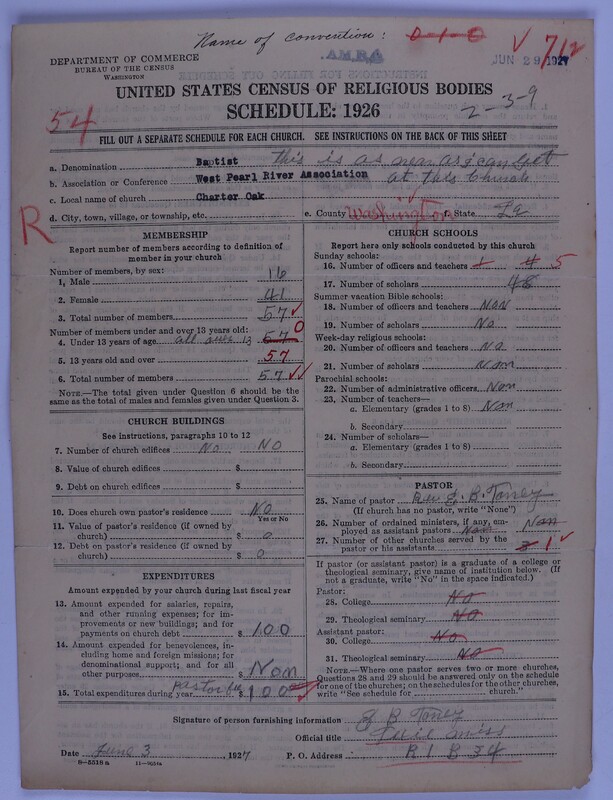 Name of convention:
A.M.B.A
JUN 29 1927
712
DEPARTMENT OF COMMERCE
BUREAU OF THE CENSUS
WASHINGTON
UNITED STATES CENSUS OF RELIGIOUS BODIES
SCHEDULE: 1926
2-3-9
54
FILL OUT A SEPARATE SCHEDULE FOR EACH CHURCH. SEE INSTRUCTIONS ON THE BACK OF THIS SHEET
a. Denomination Baptist this is as near as I can get
b. Association or Conference West Pearl River Association at this Church
c. Local name of church Charter Oak
d. City, town, village, or township, etc. e. County Washington f. State La
R
MEMBERSHIP
Report number of members according to definition of
member in your church
Number of members, by sex:
1. Male 16
2. Female 41
3. Total number of members 57
Number of members under and over 13 years old: 0
4. Under 13 years of age all over 13 57
5. 13 years old and over 57
6. Total number of members 57
NOTE.—The total given under Question 6 should be
same as the total of males and females given under Question 3.
CHURCH BUILDINGS
See instructions, paragraphs 10 to 12
7. Number of church edifices No No
8. Value of church edifices $
9. Debt on church edifices $
10. Does church own pastor's residence No
Yes or No
11. Value of pastor's residence (if owned by
church) $ 0
12. Debt on pastor's residence (if owned by
church) $ 0
EXPENDITURES
Amount expended by your church during last fiscal year
13. Amount expended for salaries, repairs,
and other running expenses; for im-
provements or new buildings; and for
payments on church debt $ 100
14. Amount expended for benevolences, in-
cluding home and foreign missions; for
denominational support; and for all
other purposes $ Non
15. Total expenditures during year $ 100
CHURCH SCHOOLS
Report here only schools conducted by this church
Sunday schools:
16. Number of officers and teachers 4 5
17. Number of scholars 48
Summer vacation Bible schools:
18. Number of officers and teachers Non
19. Number of scholars No
Week-day religious schools:
20. Number of officers and teachers No
21. Number of scholars Non
Parochial schools:
22. Number of administrative officers Non
23. Number of teachers—
a. Elementary (grades 1 to 8) Non
b. Secondary
24. Number of scholars—
a. Elementary (grades 1 to 8)
b. Secondary
PASTOR
25. Name of pastor Rev J. B. Toney
(If church has no pastor, write "None")
26. Number of ordained ministers, if any, em-
ployed as assistant pastors Non Non
27. Number of other churches served by the
pastor or his assistants 1
If pastor (or assistant pastor) is a graduate of a college or
theological seminary, give name of institution below. (If
not a graduate, write "No" in the space indicated.)
Pastor:
28. College No
29. Theological seminary No
Assistant pastor:
30. College No
31. Theological seminary No
NOTE.—Where one pastor serves two or more churches,
Questions 28 and 29 should be answered only on the schedule
for one of the churches; on the schedules for the other churches,
write "See schedule for church."
Signature of person furnishing information J B Toney
Official title
Date June 3, 1927 P. O. Address R 1 B 34
8-5518 a